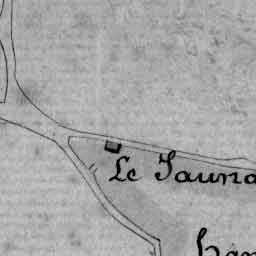 Le Jauna
han